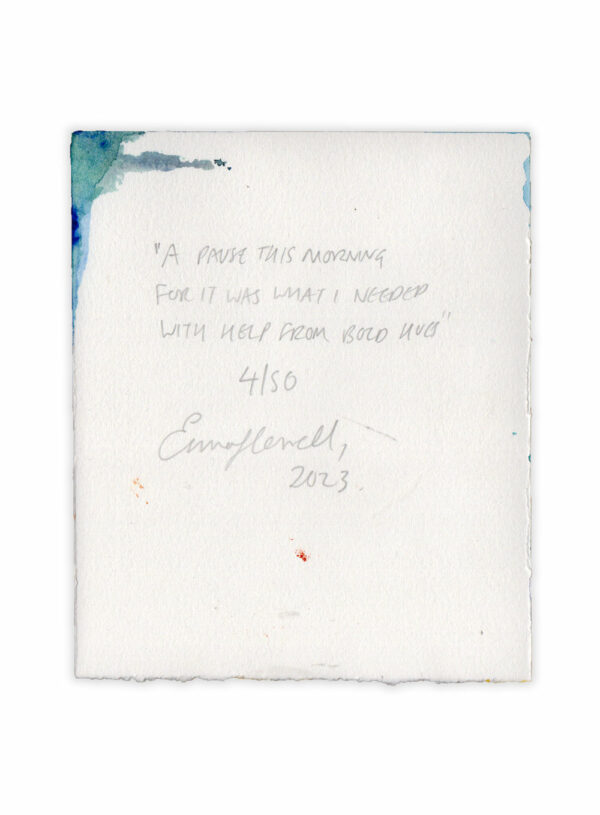 "A PAUSE THIS MORNING
FOR IT WAS WHAT I NEEDED
WITH HELP FROM BOLD HUES"
4/50
Emma Howell,
2023.